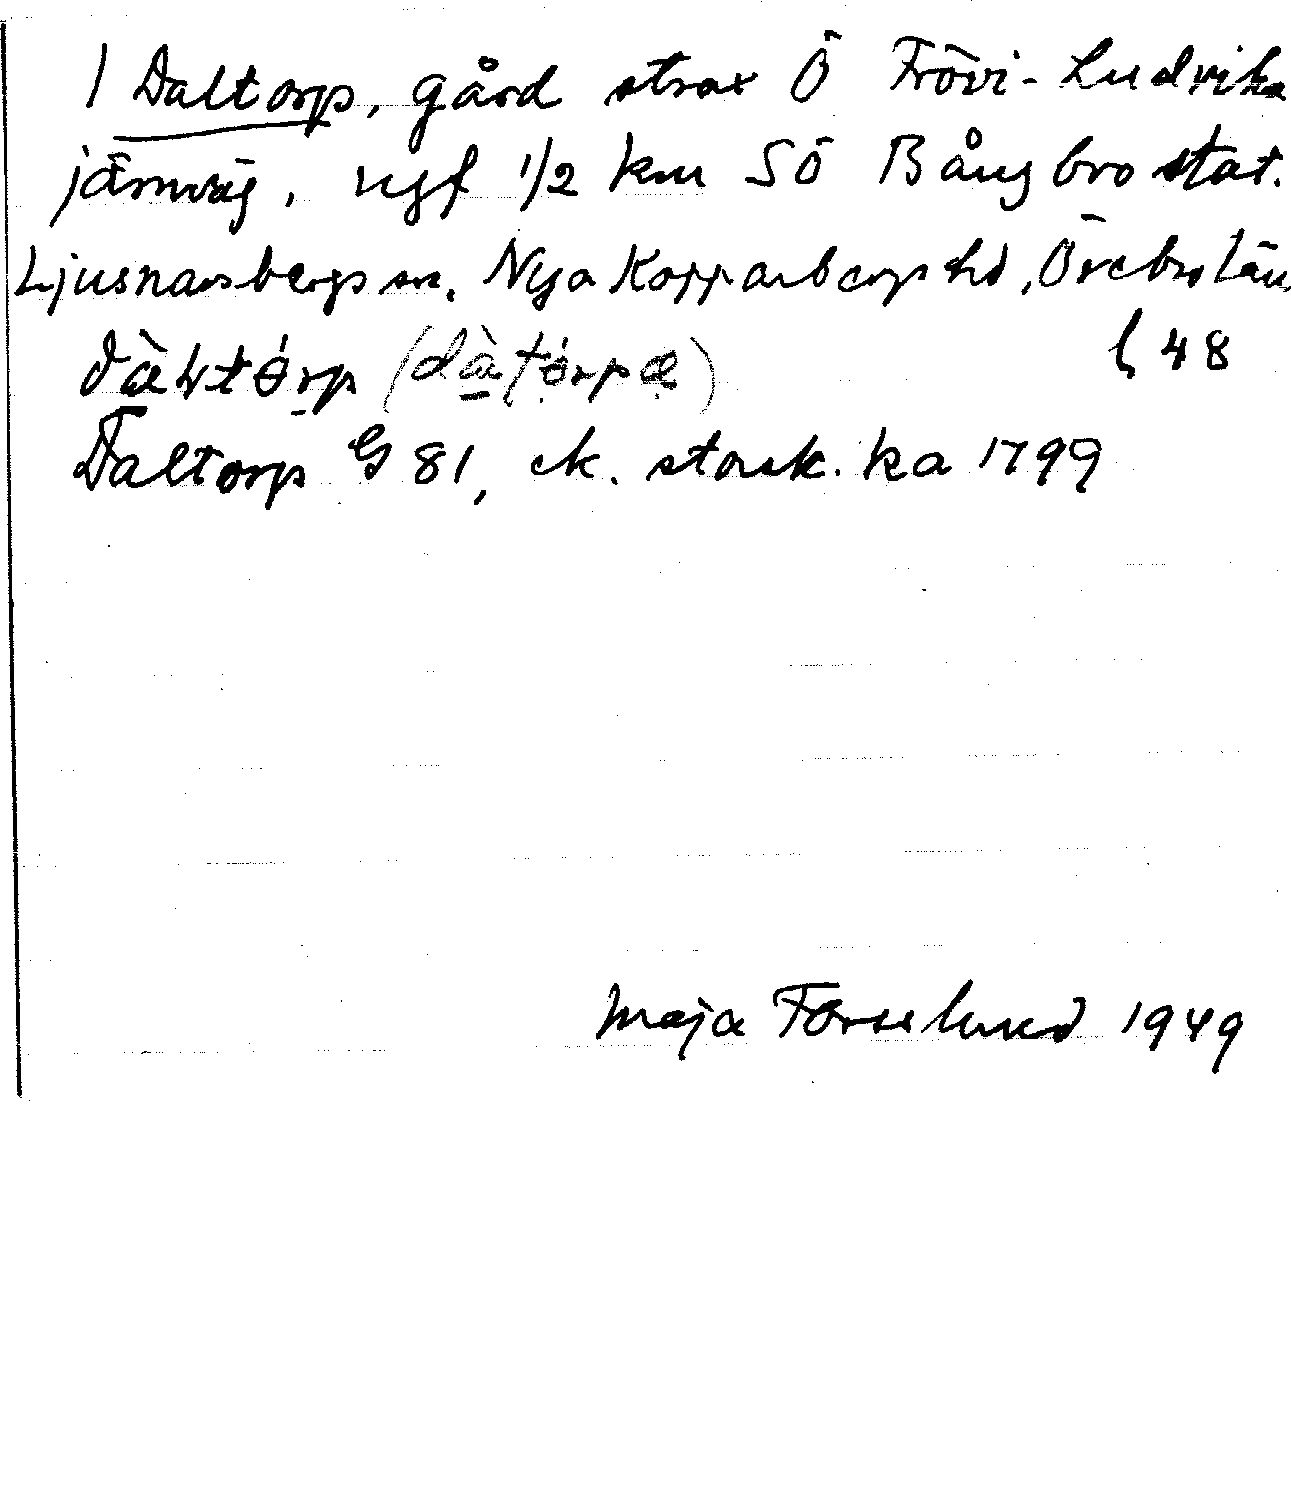 1 Daltorp, gård strax Ö Frövi-Ludvika
järnväg, ugf 1/2 km SÖ Bångbro stat.
Ljusnarsbergs sn. Nya Kopparbergs hd, Örebro län
l 48
Daltorp G 81, ek. stork. ka 1799
Maja Forselund 1949